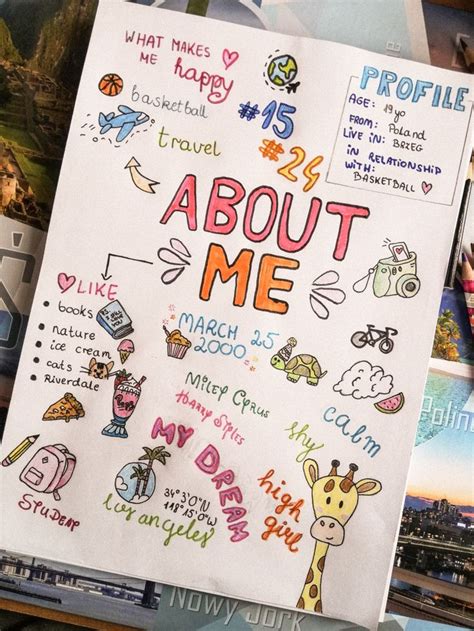 WHAT MAKES
ME happy
basketball
travel
#15
#24
PROFILE
AGE: 19 yo
FROM: Poland
LIVE IN: BRZEG
IN RELATIONSHIP
WITH:
BASKETBALL
ABOUT
ME
LIKE
books
nature
ice cream
cats
Riverdale
MARCH 25
2000
Miley Cyrus
Harry Styles
MY DREAM
shy
calm
high
girl
STUDENT
34°3'0"N
118°15'0"W
los angeles
Nowy Jork